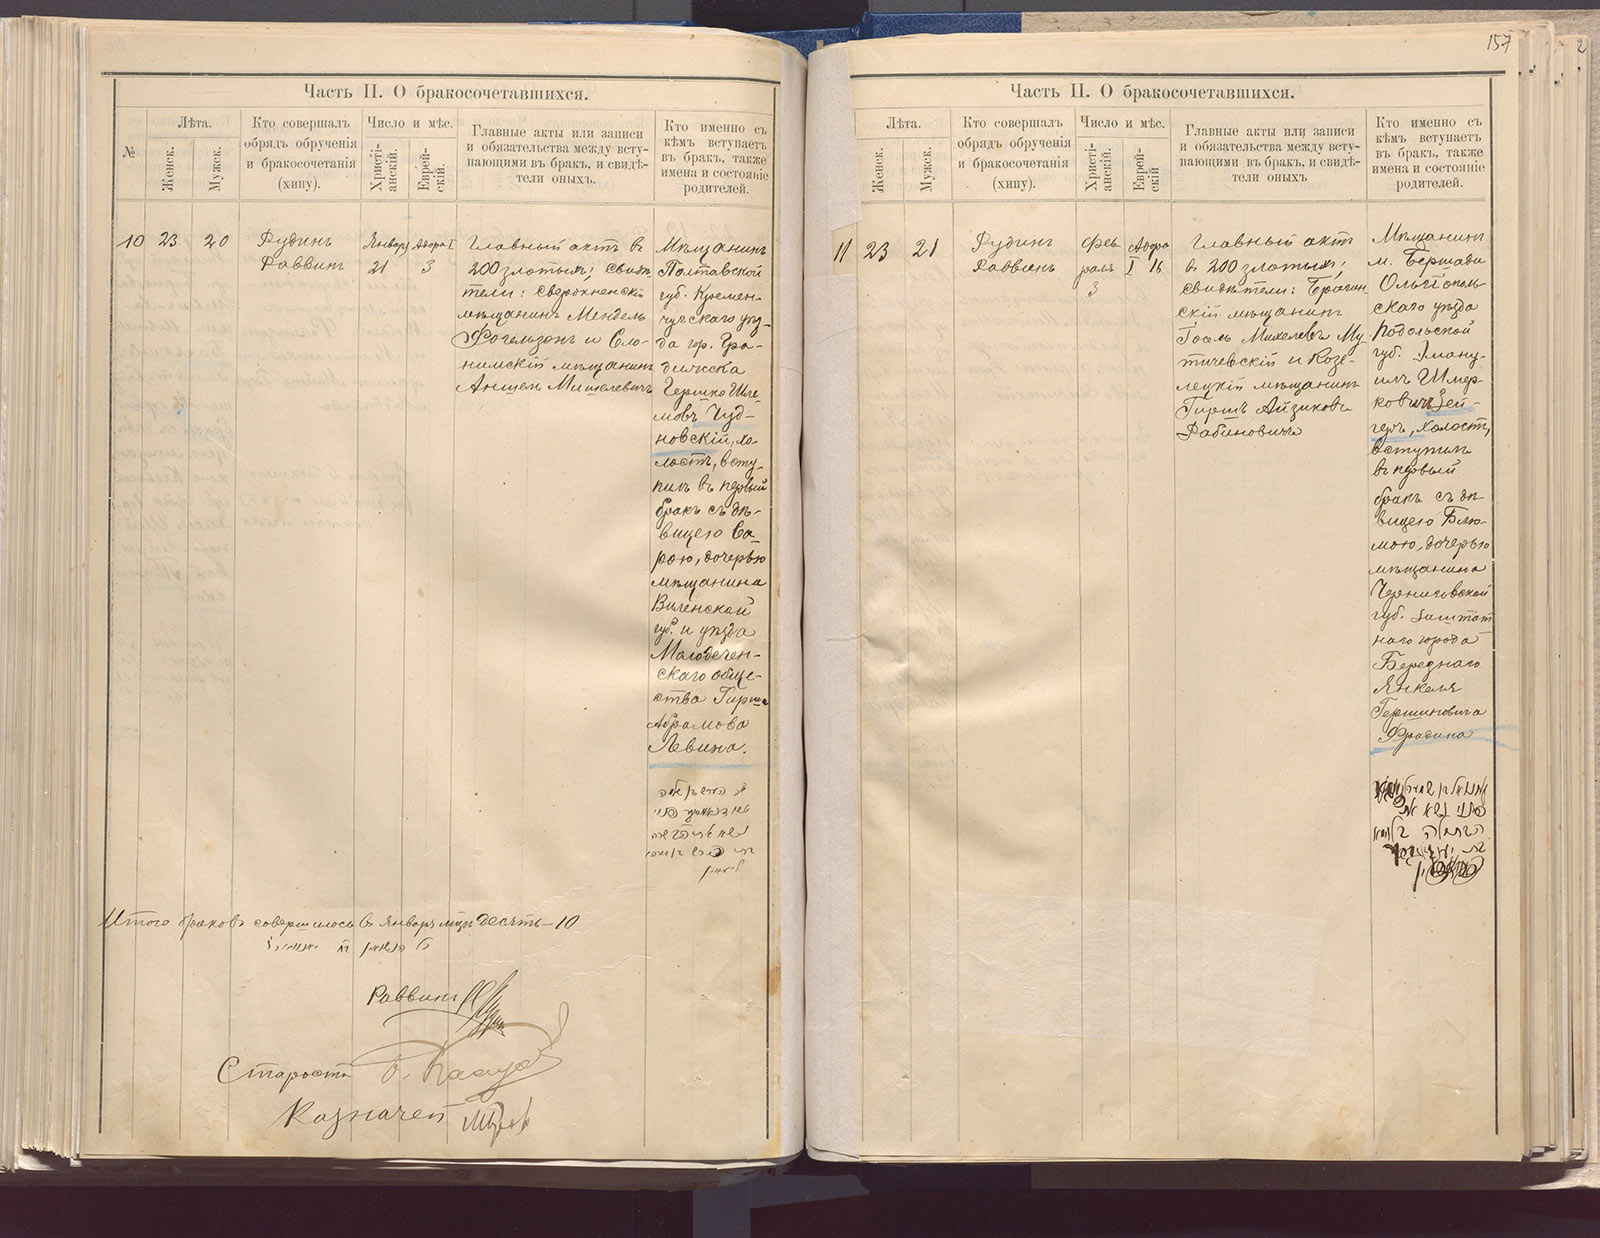 157
Часть II. О бракосочетавшихся.
№
Лѣта.
Женск.
Мужск.
Кто совершалъ
обрядъ обрученія
и бракосочетанія
(хипу).
Число и мѣс.
Христі-
анскій.
Еврей-
скій.
Главные акты или записи
и обязательства между всту-
пающими въ бракъ, и свидѣ-
тели оныхъ.
Кто именно съ
кѣмъ вступаетъ
въ бракъ, также
имена и состояніе
родителей.
10
23
20
Раввинъ
Января
21
Адора I
3
Главный актъ в
200 злотыхъ; свидѣ-
тели:
мѣщанинъ Мендель
Фогельзонъ и Сло-
нимскій мѣщанинъ
Аншел Мишелевичъ
Мѣщанинъ
Полтавской
губ. Кремен-
чугскаго уѣз-
да гор. Гра-
дижска
Гершко Шле-
мовъ Чуд-
новскій, хо-
лостъ, всту-
пилъ въ первый
бракъ съ дѣ-
вицею Са-
рою, дочерью
мѣщанина
Виленской
губ. и уѣзда
Молодечен-
скаго обще-
ства Гирша
Абрамова
Левина.
Итого браковъ совершилось въ Январѣ мцѣ десять – 10
Раввинъ
Староста
Казначей
Часть II. О бракосочетавшихся.
Лѣта.
Женск.
Мужск.
Кто совершалъ
обрядъ обрученія
и бракосочетанія
(хипу).
Число и мѣс.
Христі-
анскій.
Еврей-
скій
Главные акты или записи
и обязательства между всту-
пающими въ бракъ, и свидѣ-
тели оныхъ
Кто именно съ
кѣмъ вступаетъ
въ бракъ, также
имена и состояніе
родителей.
11
23
21
Раввинъ
Фев
раль
3
Адора
I 16
Главный актъ
в 200 злотыхъ;
свидѣтели: Брагин-
скій мѣщанинъ
Михелевъ Му-
тичевскій и Козе-
лецкій мѣщанинъ
Гиршъ Айзиковъ
Рабиновичъ
Мѣщанинъ
м. Бершади
Ольгополь-
скаго уѣзда
Подольской
губ. Эману-
илъ Шмер-
ковичъ Зей-
геръ, холостъ,
вступилъ
въ первый
бракъ съ дѣ-
вицею Блю-
мою, дочерью
мѣщанина
Черниговской
губ. заштат-
наго города
Березнаго
Янкеля
Гершиновича
Фрадина